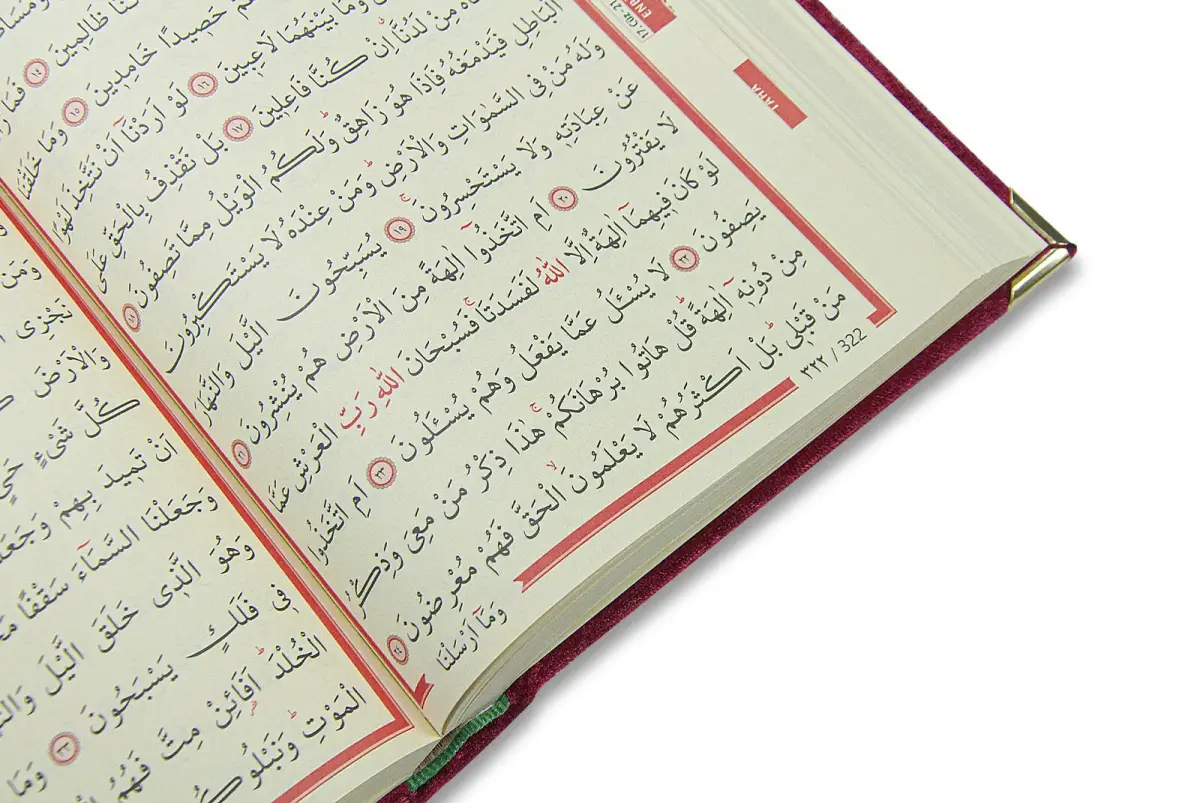 ظَالِمِينَ ١٤ فَمَا
حَصِيدًا خَامِدِينَ ١٥ وَمَا خَلَقْنَا
وَمَا بَيْنَهُمَا لَاعِبِينَ ١٦ لَوْ اَرَدْنَٓا اَنْ نَتَّخِذَ لَهْوًا
مِنْ لَدُنَّٓا اِنْ كُنَّا فَاعِلِينَ ١٧ بَلْ نَقْذِفُ بِالْحَقِّ عَلَى
الْبَاطِلِ فَيَدْمَغُهُ فَاِذَا هُوَ زَاهِقٌۜ وَلَكُمُ الْوَيْلُ مِمَّا تَصِفُونَ ١٨
وَلَهُ مَنْ فِي السَّمٰوَاتِ وَالْاَرْضِۜ وَمَنْ عِنْدَهُ لَا يَسْتَكْبِرُونَ
عَنْ عِبَادَتِهِ وَلَا يَسْتَحْسِرُونَۚ ١٩ يُسَبِّحُونَ الَّيْلَ وَالنَّهَارَ
لَا يَفْتُرُونَ ٢٠ اَمِ اتَّخَذُٓوا اٰلِهَةً مِنَ الْاَرْضِ هُمْ يُنْشِرُونَ ٢١
لَوْ كَانَ فِيهِمَٓا اٰلِهَةٌ اِلَّا اللّٰهُ لَفَسَدَتَاۚ فَسُبْحَانَ اللّٰهِ رَبِّ الْعَرْشِ عَمَّا
يَصِفُونَ ٢٢ لَا يُسْـَٔلُ عَمَّا يَفْعَلُ وَهُمْ يُسْـَٔلُونَ ٢٣ اَمِ اتَّخَذُوا
مِنْ دُونِهِٓ اٰلِهَةًۜ قُلْ هَاتُوا بُرْهَانَكُمْۚ هٰذَا ذِكْرُ مَنْ مَعِيَ وَذِكْرُ
مَنْ قَبْلِيۜ بَلْ اَكْثَرُهُمْ لَا يَعْلَمُونَۙ الْحَقَّ فَهُمْ مُعْرِضُونَ ٢٤
وَمَٓا اَرْسَلْنَا
٣٢٢ / 322
17.CÜZ-21
TAHA
وَمَنْ
نَجْزِي
وَالْاَرْضَ
كُلَّ شَيْءٍ حَيٍّ
اَنْ تَمِيدَ بِهِمْ وَجَعَلْنَا
وَجَعَلْنَا السَّمَٓاءَ سَقْفًا
وَهُوَ الَّذِي خَلَقَ الَّيْلَ
فِي فَلَكٍ يَسْبَحُونَ ٣٣ وَمَا
الْخُلْدَۜ اَفَا۬ئِنْ مِتَّ فَهُمُ
الْمَوْتِۜ وَنَبْلُوكُمْ